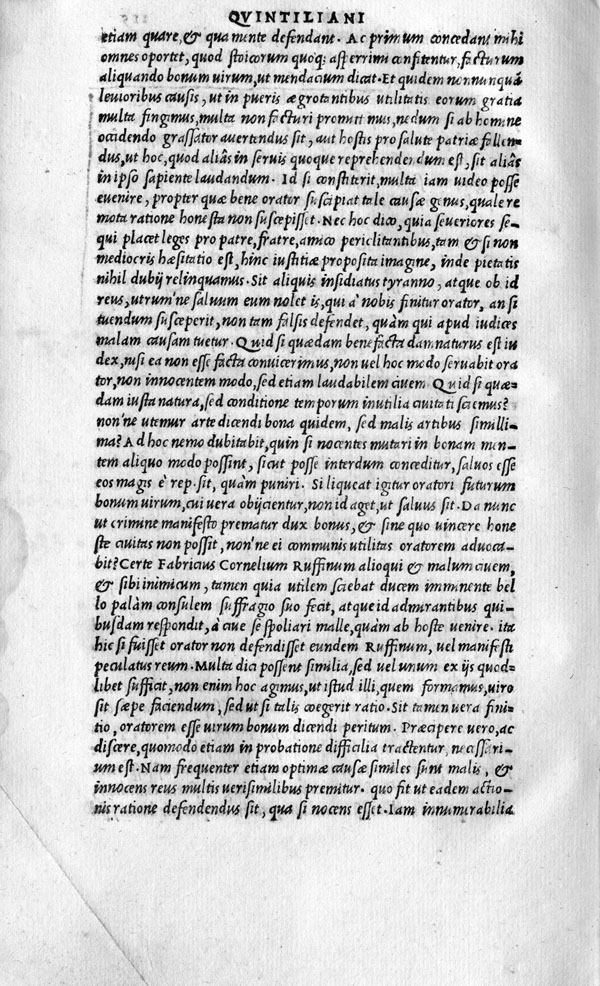 QVINTILIANI
etiam quare, & qua mente defendant. Ac primum concedant mihi
omnes oportet, quod stoicorum quoq; asperrimi confitentur, facturum
aliquando bonum uirum, ut mendacium dicat. Et quidem nonnunquã
leuioribus causis, ut in pueris ægrotantibus utilitatis eorum gratia
multa fingimus, multa non facturi promittimus, nedum si ab homine
occidendo grassator auertendus sit, aut hostis pro salute patriæ fallen-
dus, ut hoc, quod aliâs in seruis quoque reprehendendum est, sit aliâs
in ipso sapiente laudandum. Id si constiterit, multa iam uideo posse
euenire, propter quæ bene orator suscipiat tale causæ genus, quale re
mota ratione honesta non suscepisset. Nec hoc dico, quia seueriores se-
qui placet leges pro patre, fratre, amico periclitantibus, tam & si non
mediocris hæsitatio est, hinc iustitiæ proposita imagine, inde pietatis
nihil dubij relinquamus. Sit aliquis insidiatus tyranno, atque ob id
reus, utrum'ne saluum eum nolet is, qui à nobis finitur orator, an si
tuendum susceperit, non tam falsis defendet, quàm qui apud iudices
malam causam tuetur. Quid si quædam bene facta damnaturus est iu
dex, nisi ea non esse facta conuicerimus, non uel hoc modo seruabit ora
tor, non innocentem modo, sed etiam laudabilem ciuem Quid si quæ-
dam iusta natura, sed conditione temporum inutilia ciuitati sciemus?
non'ne utemur arte dicendi bona quidem, sed malis artibus simili-
ma? Ad hoc nemo dubitabit, quin si nocentes mutari in bonam men-
tem aliquo modo possint, sicut posse interdum conceditur, saluos esse
eos magis è rep. sit, quàm puniri. Si liqueat igitur oratori futurum
bonum uirum, cui uera obijcientur, non id aget, ut saluus sit. Da nunc
ut crimine manifesto prematur dux bonus, & sine quo uincere hone
ste ciuitas non possit, non'ne ei communis utilitas oratorem aduoca-
bit? Certe Fabricius Cornelium Ruffinum alioqui & malum ciuem,
& sibi inimicum, tamen quia utilem sciebat ducem imminente bel
lo palàm consulem suffragio suo fecit, atque id admirantibus qui-
busdam respondit, à ciue se spoliari malle, quàm ab hoste uenire. ita
hic si fuisset orator non defendisset eundem Ruffinum, uel manifesti
peculatus reum. Multa dici possent similia, sed uel unum ex ijs quod-
libet sufficit, non enim hoc agimus, ut istud illi, quem formamus, uiro
sit sæpe faciendum, sed ut si talis coegerit ratio. Sit tamen uera fini-
tio, oratorem esse uirum bonum dicendi peritum. Præcipere uero, ac
discere, quomodo etiam in probatione difficilia tractentur, necessari-
um est. Nam frequenter etiam optimæ causæ similes sunt malis, &
innocens reus multis uerisimilibus premitur. quo fit ut eadem actio-
nis ratione defendendus sit, qua si nocens esset. Iam innumerabilia